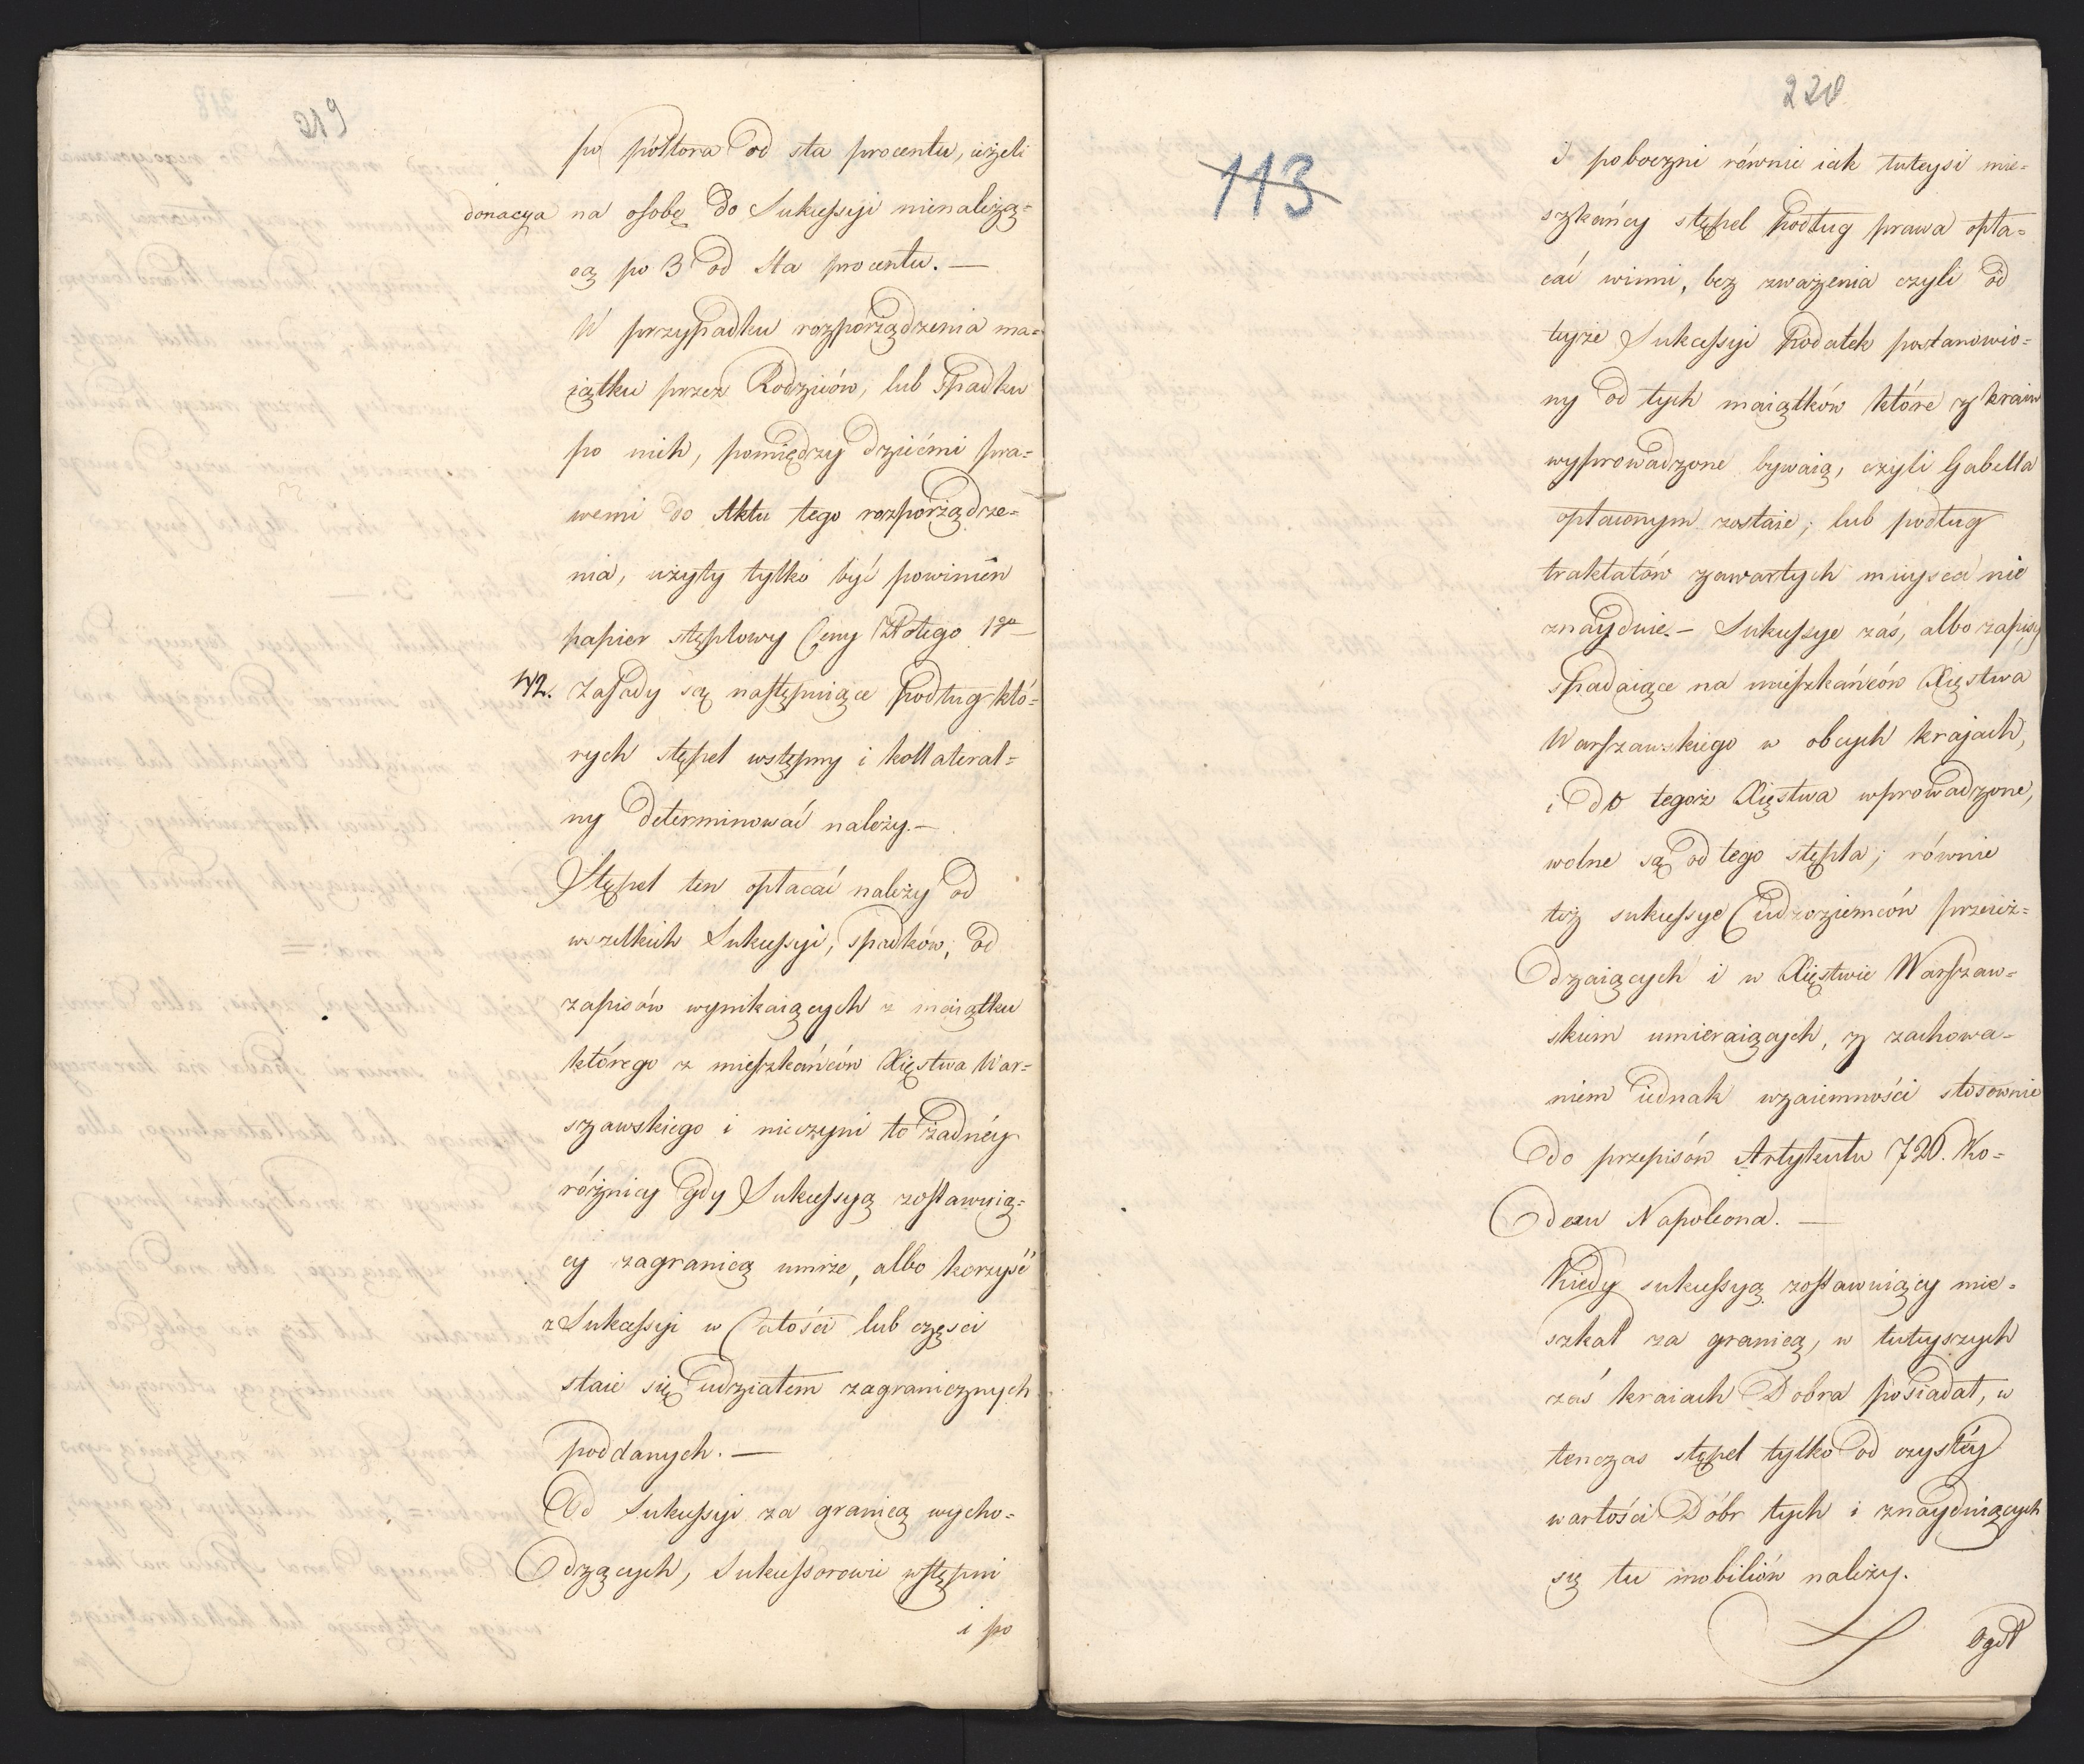 219
po półtora od sta procentu, ieżeli
donacya na osobę do Sukcessyi nienależą=
cą po 3 od sta procentu. —
W przypadku rozporządzenia ma=
iątku przez Rodziców, lub Spadku
po nich, pomiędzy dziećmi pra=
wemi do Aktu tego rozporządze=
nia, użyty tylko być powinien
papier stęplowy Ceny Złotego 1go
42. Zasady są następuiące podług któ=
rych stępel wstępny i kollateral=
ny determinować należy. —
Stępel ten opłacać należy od
wszelkich Sukcessyi, spadków, od
zapisów wynikaiących z maiątku
którego z mieszkańców Xięstwa War=
szawskiego i nieczyni to żadnéy
różnicy gdy Sukcessyą zostawuią=
cy zagranicą umrze, albo korzyść
z Sukcessyi w Całości lub częsci
staie się udziałem zagranicznych
poddanych. —
Od Sukcessyi za granicą wycho=
dzących, Sukcessorowie wstępni
i po
220
113
I poboczni równie iak tuteysi mie=
szkańcy stępel podług prawa opła=
cać winni, bez zważenia czyli od
teyże Sukcessyi podatek postanowio=
ny od tych maiątków które z kraiu
wyprowadzone bywaią, czyli Gabella
opłaconym zostaie; lub podług
traktatów zawartych mieysca nie
znayduie. — Sukcessye zaś, albo zapisy
spadaiące na mieszkańców Xięstwa
Warszawskiego w obcych krajach,
i do tegoż Xięstwa wprowadzone,
wolne są od tego stępla; równie
też sukcessye Cudzoziemców przeież=
dzaiących i w Xięstwie Warszaw=
skiem umieraiących, z zachowa=
niem iednak wzaiemności stosownie
do przepisów Artykułu 720. Ko=
dexu Napoleona. —
Kiedy sukcessyą zostawuiący mie=
szkał za granicą, w tuteyszych
zaś kraiach Dobra posiadał, w
tenczas stępel tylko od czystéy
wartości Dóbr tych i znayduiących
się tu mobiliów należy.